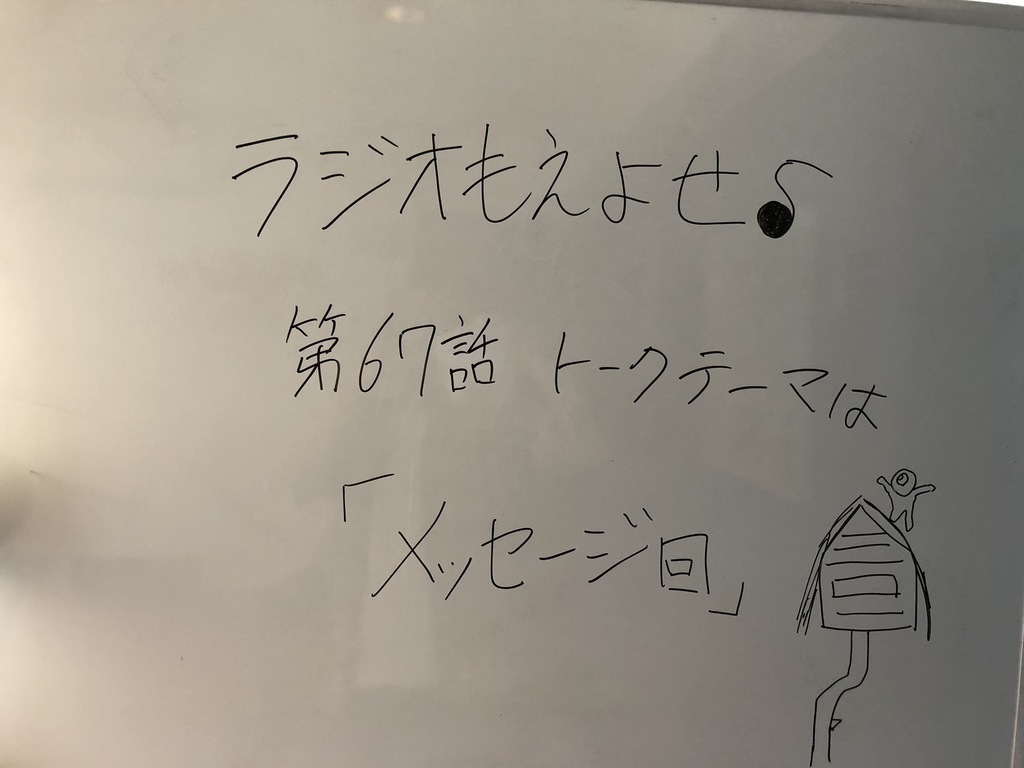 ラジオもえよせ♪
第67話 トークテーマは
「メッセージ回」